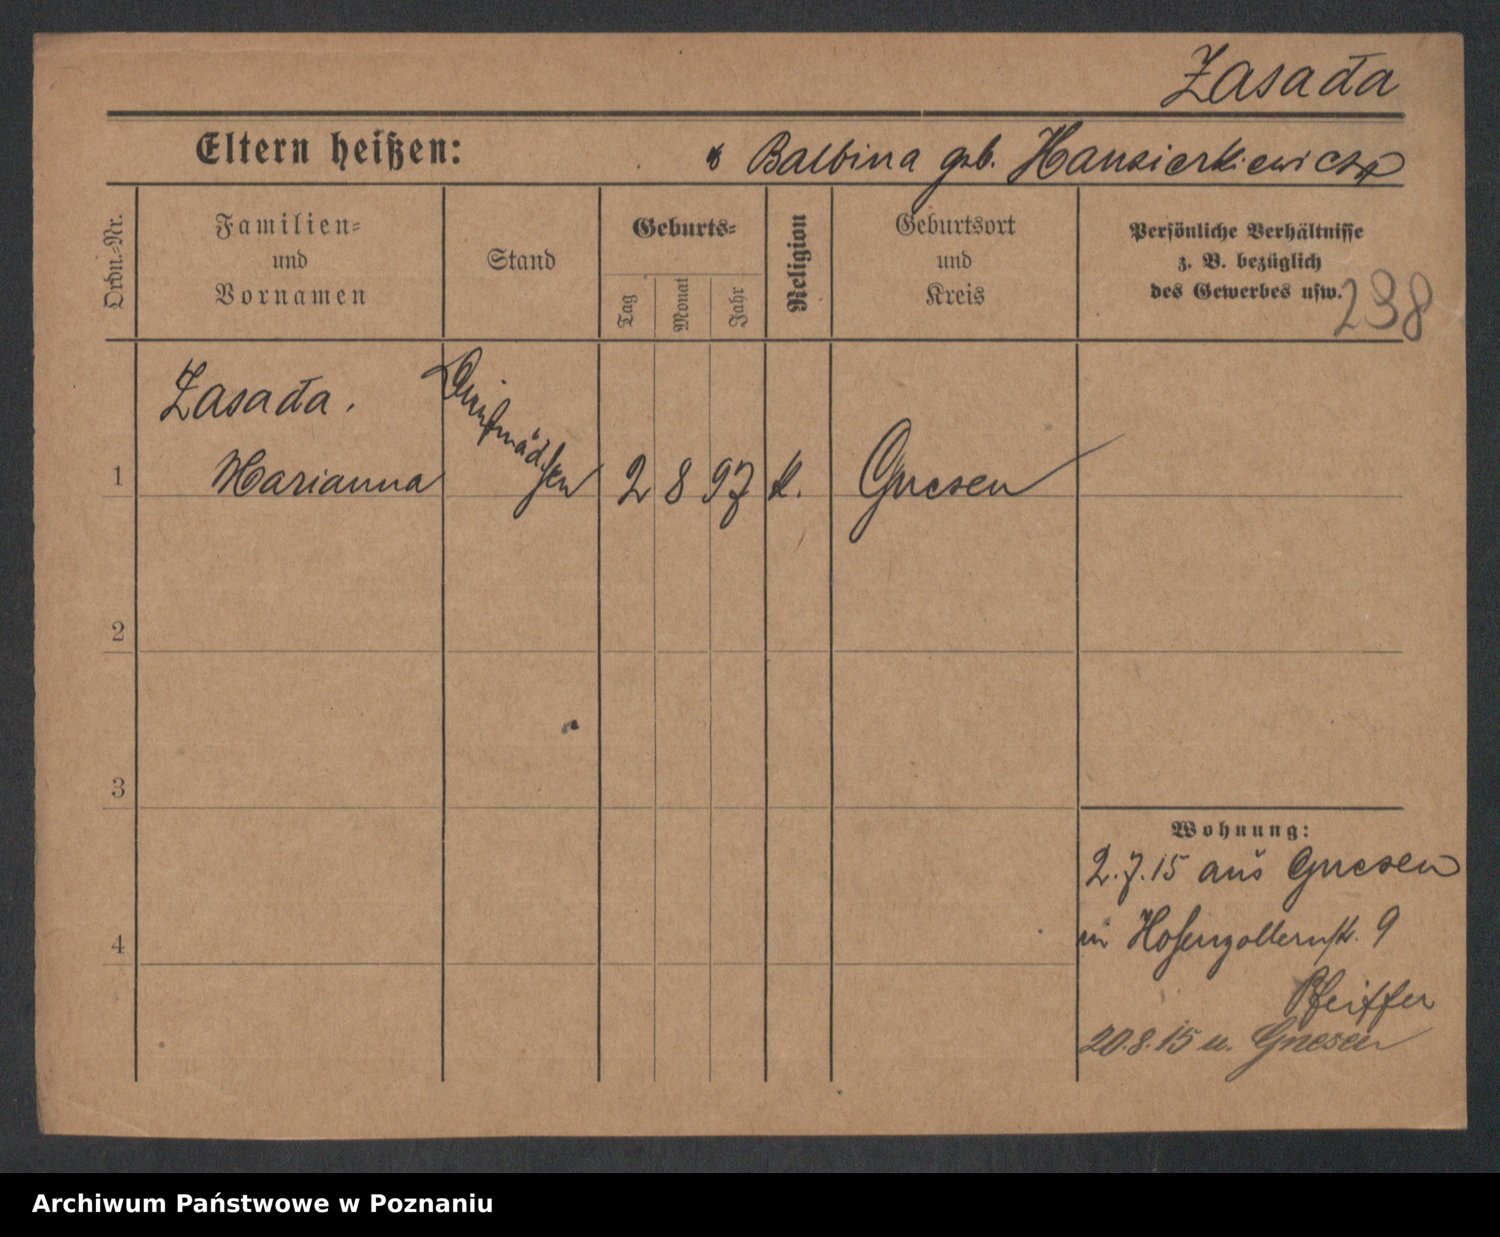 Zasada
Eltern heißen: Balbina geb.
Ordn.-Nr.
Familien-
und
Vornamen
Stand
Geburts-
Tag
Monat
Jahr
Religion
Geburtsort
und
Kreis
Persönliche Verhältnisse
z. B. bezüglich
des Gewerbes usw.
238
Zasada.
Dienstmädchen
1 Marianna 2 8 97 k. Gnesen
2
3
Wohnung:
2.7.15 aus Gnesen
4
in Hohenzollernstr. 9
Pfeiffer
20.8.15 n. Gnesen
Archiwum Państwowe w Poznaniu